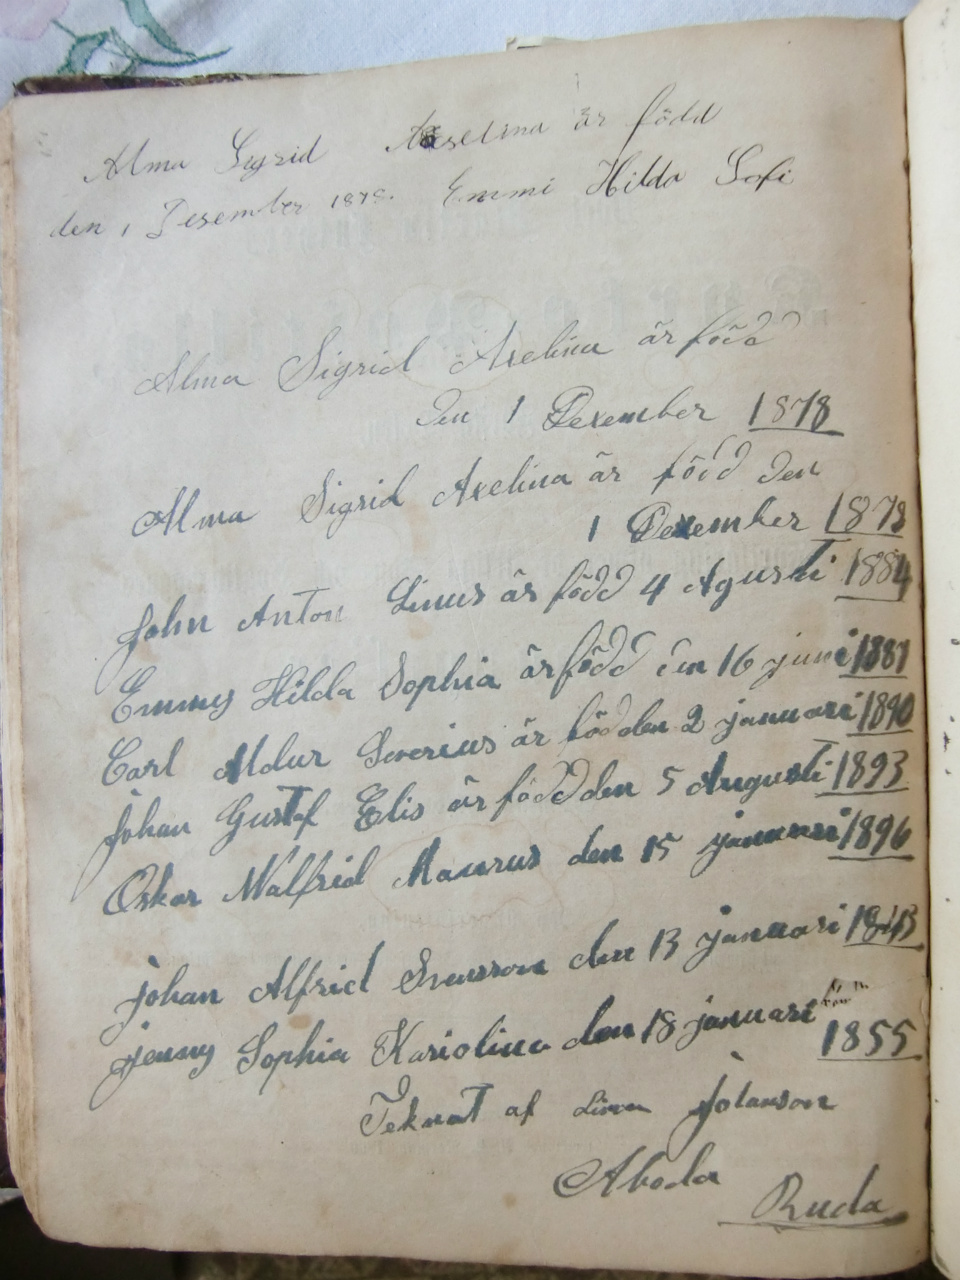 Alma Segrid Axselina är född
den 1 Desember 1878. Emmi Hilda Sofi
Alma Sigrid Axelina är född
den 1 Dexember 1878
Alma Sigrid Axelina är född den
1 Dexember 1878
John Anton Linus är född 4 Agusti 1884
Emmy Hilda Sophia är född den 16 juni 1887
Carl Aldur Severius är född den 2 januari 1890
johan Gustaf Elis är född den 5 Augusti 1893
Oskar Walfrid Maurus den 15 januari 1896
johan Alfrid Svensson den 13 januari 1843
jenny Sophia Kariolina den 18 januari
1855
Teknat af Johanson
Aboda
Ruda